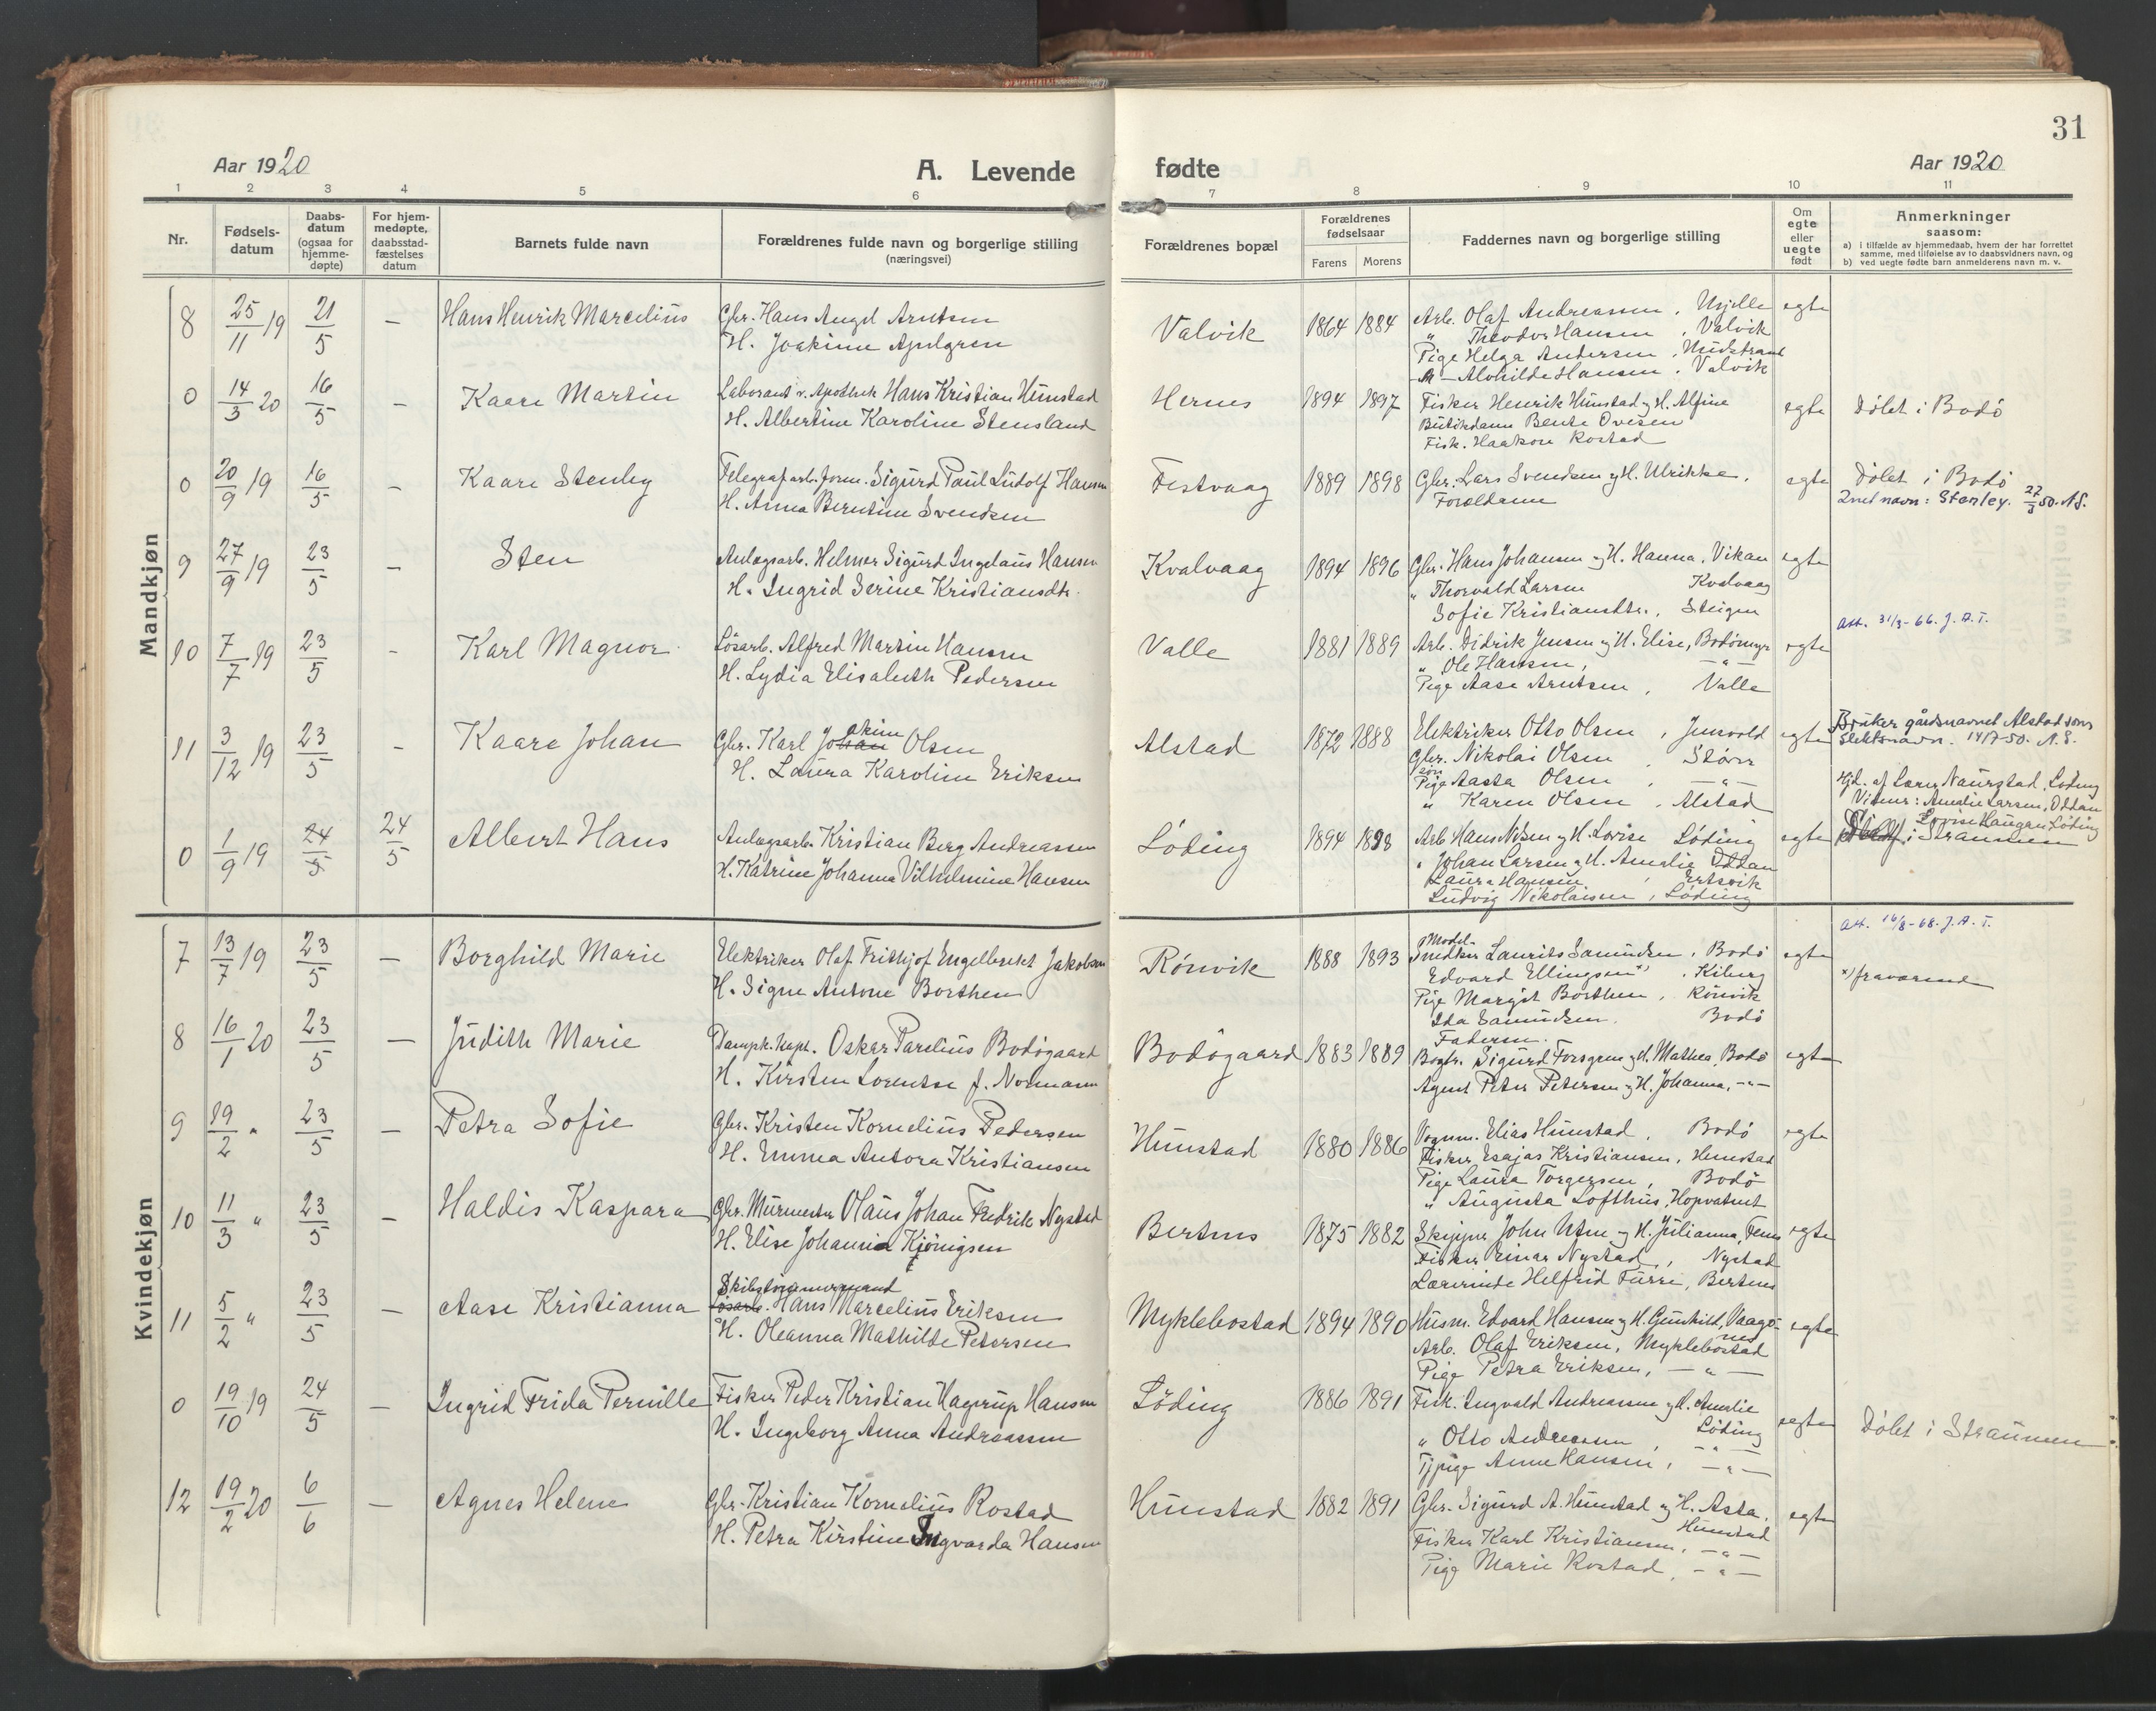 31
Aar 1920
A. Levende fødte
Aar 1920
1 2 3 4 5 6 7 8 9 10 11
Nr.
Fødsels-
datum
Daabs-
datum
(ogsaa for
hjemme-
døpte)
For hjem-
medøpte,
daabsstad-
fæstelses
datum
Barnets fulde navn
Forældrenes fulde navn og borgerlige stilling
(næringsvei)
Forældrenes bopæl
Forældrenes
fødselsaar
Farens Morens
Faddernes navn og borgerlige stilling
Om
egte
eller
uegte
født
Anmerkninger
saasom:
a) i tilfælde av hjemmedaab, hvem der har forrettet
samme, med tilføielse av to daabsvidners navn, og
b) ved uegte fødte barn anmelderens navn m. v.
Mandkjøn
8 25/11 19 21/5 — Hans Henrik Marcelius
Gbr. Hans Angel Arntsen
H. Joakime Apelgren
Valvik 1864 1884
Arb. Olaf Andreassen, egte
" Theodor Hansen, Valvik
Pige Helga Andersen,
— Alvhilde Hansen, Valvik
0 14/3 20 16/5 — Kaare Martin
Laborant v. Apothek Hans Kristian Hunstad
H. Albertine Karoline Stensland
Hernes 1894 1897
Fisker Henrik Hunstad og H. Alfine egte Døbt i Bodø
Butikdame Bente Ovesen
Fisk. Haakon Rostad
0 20/9 19 16/5 — Kaare Stenley
Telegrafarb. form. Sigurd Paul Ludolf Hansen
H. Anna Berntine Svendsen
Festvaag 1889 1898
Gbr. Lars Svendsen og H. Ulrikke. egte Døbt i Bodø
Foreldrene
2net navn: Stanley. 27/3 50. N.S.
9 27/9 19 23/5 — Sten
Anlægsarb. Helmer Sigurd Ingelaus Hansen
H. Ingrid Serine Kristiansdtr.
Kvalvaag 1894 1896
Gbr. Hans Johansen og H. Hanna, Vikan egte
" Thorvald Larsen Kvalvaag
Sofie Kristiansdtr., Steigen
10 7/7 19 23/5 - Karl Magnor
Løsarb. Alfred Martin Hansen
H. Lydia Elisabeth Pedersen
Valle 1881 1889
Arb. Didrik Jensen og H. Elise, Bodømyr egte
" Ole Hansen, —"—
Pige Aase Arntsen, Valle
Att. 31/3-66. J.A.T.
11 3/12 19 23/5 - Kaare Johan
Gbr. Karl Johan akim Olsen
H. Laura Karoline Eriksen
Alstad 1872 1888
Elektriker Otto Olsen, Jensvold egte
Gbr. søn Nikolai Olsen, Støver
Pige Aasta Olsen, —"—
" Karen Olsen, Alstad
Bruker gårdsnavnet Alstad som
slektsnavn. 14/7-50. N.S.
0 1/9 19 24/5 24/5 Albert Hans
Anlægsarb. Kristian Berg Andreassen
H. Katrine Johanna Vilhelmine Hansen
Løding 1894 1898
Arb. Hans Nilsen og H. Lovise Løding egte
" Johan Larsen og H. Amalie Oddan
Laura Hansen, Ertsvik
Ludvig Nikolaisen, Løding
Hjd. af Lærer Naurstad, Løding
Vidner: Amalie Larsen, Oddan
Lovise Haugan Løding
i Straumen
Kvindekjøn
7 13/7 19 23/5 — Borghild Marie
Elektriker Olaf Frithjof Engelbrekt Jakobsen
H. Signe Antone Borthen
Rønvik 1888 1893
Model-
Snedker Laurits Samuelsen, Bodø egte
Edvard Ellingsen x), Kiberg
Pige Margit Borthen, Rønvik
Ida Samuelsen. Bodø
Faderen.
Att. 16/8-68. J.A.T.
x) fraværende
8 16/1 20 23/5 — Judith Marie
Dampsk. kapt. Oskar Parelius Bodøgaard
H. Kirsten Lorentse f. Normann
Bodøgaard 1883 1889
Bogtr. Sigurd Forsgren og H. Mathea, Bodø egte
Agent Peter Petersen og H. Johanna, —"—
9 19/2 " 23/5 — Petra Sofie
Gbr. Kristen Kornelius Pedersen
H. Emma Antora Kristiansen
Hunstad 1880 1886
Vognm. Elias Hunstad, Bodø egte
Fisker Esajas Kristiansen, Hunstad
Pige Laura Torgersen, Bodø
" Augusta Lofthus, Hopvatnet
10 11/3 " 23/5 — Haldis Kaspara
Gbr. Murmester Olaus Johan Fredrik Nystad
H. Elise Johanna Kjønigsen
Bertnes 1875 1882
Skipper John Utne og H. Julianna, egte
Fisker Einar Nystad, Nystad
Lærerinde Helfrid Furre, Bertnes
11 5/2 " 23/5 — Aase Kristianna
Skibstømmermand
Løsarb. Hans Marcelius Eriksen
H. Oleanna Mathilde Petersen
Myklebostad 1894 1890
Husm. Edvard Hansen og H. Gunhild, Vaagø-
nes egte
Arb. Olaf Eriksen, Myklebostad
Pige Petra Eriksen, —"—
0 19/10 19 24/5 — Ingrid Frida Pernille
Fisker Peder Kristian Hagerup Hansen
H. Ingeborg Anna Andreassen
Løding 1886 1891
Fisk. Ingvald Andreassen og H. Amalie
Løding egte Døbt i Straumen
" Otto Andreassen, —"—
Tjpige Anne Hansen, —"—
12 19/2 20 6/6 — Agnes Helene
Gbr. Kristian Kornelius Rostad
H. Petra Kirstine Ingvarda Hansen
Hunstad 1882 1891
Gbr. Sigurd A. Hunstad og H. Asta,
Hunstad egte
Fisker Karl Kristiansen, —"—
Pige Marie Rostad, —"—